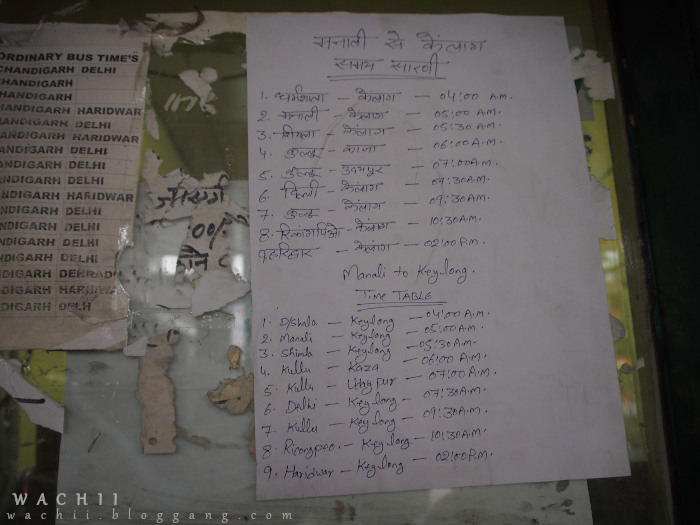 ORDINARY BUS TIME'S
CHANDIGARH DELHI
CHANDIGARH
CHANDIGARH
HANDIGARH HARIDWAR
ANDIGARH DELHI
HANDIGARH HARIDWAR
ANDIGARH DELHI
ANDIGARH DELHI
NDIGARH DELHI
ANDIGARH HARIDWAR
ANDIGARH DELHI
DIGARH DELHI
DIGARH DELHI
DIGARH DEHRAD
DIGARH HARIDWAR
DIGARH DELHI
मनाली से केंलाग
समय सारणी
1. धर्मशाला – केलांग – 04:00 A.M.
2. मनाली – केलांग – 05:00 A.M.
3. शिमला – केलांग – 05:30 A.M.
4. कुल्लू – काजा – 06:00 A.M.
5. कुल्लू – उदयपुर – 07:00 A.M.
6. दिल्ली – केलांग – 07:30 A.M.
7. कुल्लू – केलांग – 09:30 A.M.
8. रिकांगपिओ – केलांग – 10:30 A.M.
9. हरिद्वार – केलांग – 02:00 P.M.
Manali to Keylong.
TIME TABLE
1. D/Shala – Keylong – 04:00 A.M.
2. Manali – Keylong – 05:00 A.M.
3. Shimla – Keylong – 05:30 A.M.
4. Kullu – Kaza – 06:00 A.M.
5. Kullu – Udaypur – 07:00 A.M.
6. Delhi – Keylong – 07:30 A.M.
7. Kullu – Keylong – 09:30 A.M.
8. Ricongpeo. – Keylong – 10:30 A.M.
9. Haridwar – Keylong – 02:00 P.M.
WACHII
wachii.bloggang.com